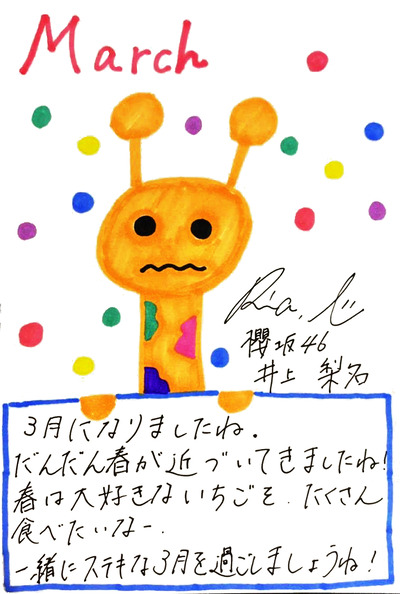 March
Rina. i
櫻坂46
井上 梨名
3月になりましたね。
だんだん春が近づいてきましたね!
春は大好きないちごを、たくさん
食べたいなー。
一緒にステキな3月を過ごしましょうね!